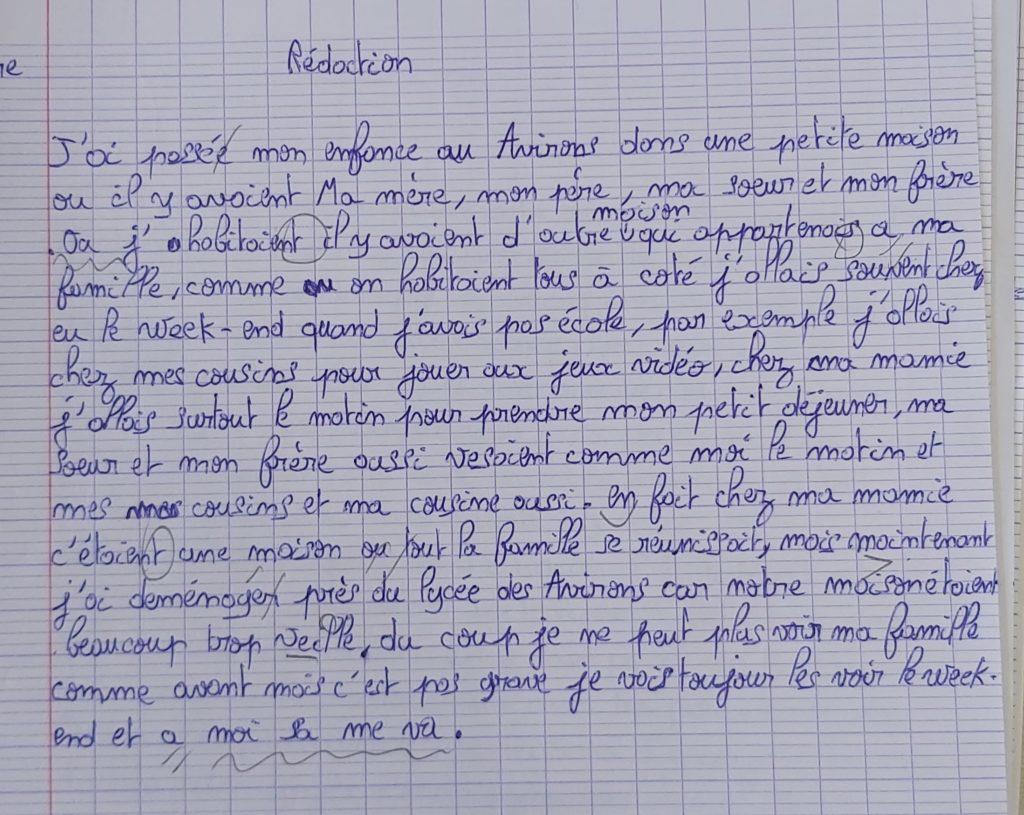 ne
Rédaction
J'ai passée mon enfance au Avirons dans une petite maison
ou il y avaient Ma mère, mon père, ma soeur et mon frère
. Ou j' habitaient il y avaient d'autre maison que appartenais a ma
famille, comme on habitaient tous à coté j'allais souvent chez
eu le week-end quand j'avais pas école, par exemple j'allais
chez mes cousins pour jouer aux jeux vidéo, chez ma mamie
j'allais surtout le matin pour prendre mon petit déjeuner, ma
soeur et mon frère aussi venaient comme moi le matin et
mes cousins et ma cousine aussi. en fait chez ma mamie
c'étaient une maison ou tout la famille se réunissait, mais maintenant
j'ai deménager près du lycée des Avirons car notre maison étaient
beaucoup trop veille, du coup je ne peut plus voir ma famille
comme avant mais c'est pas grave je vais toujour les voir le week-
end et a moi sa me va.